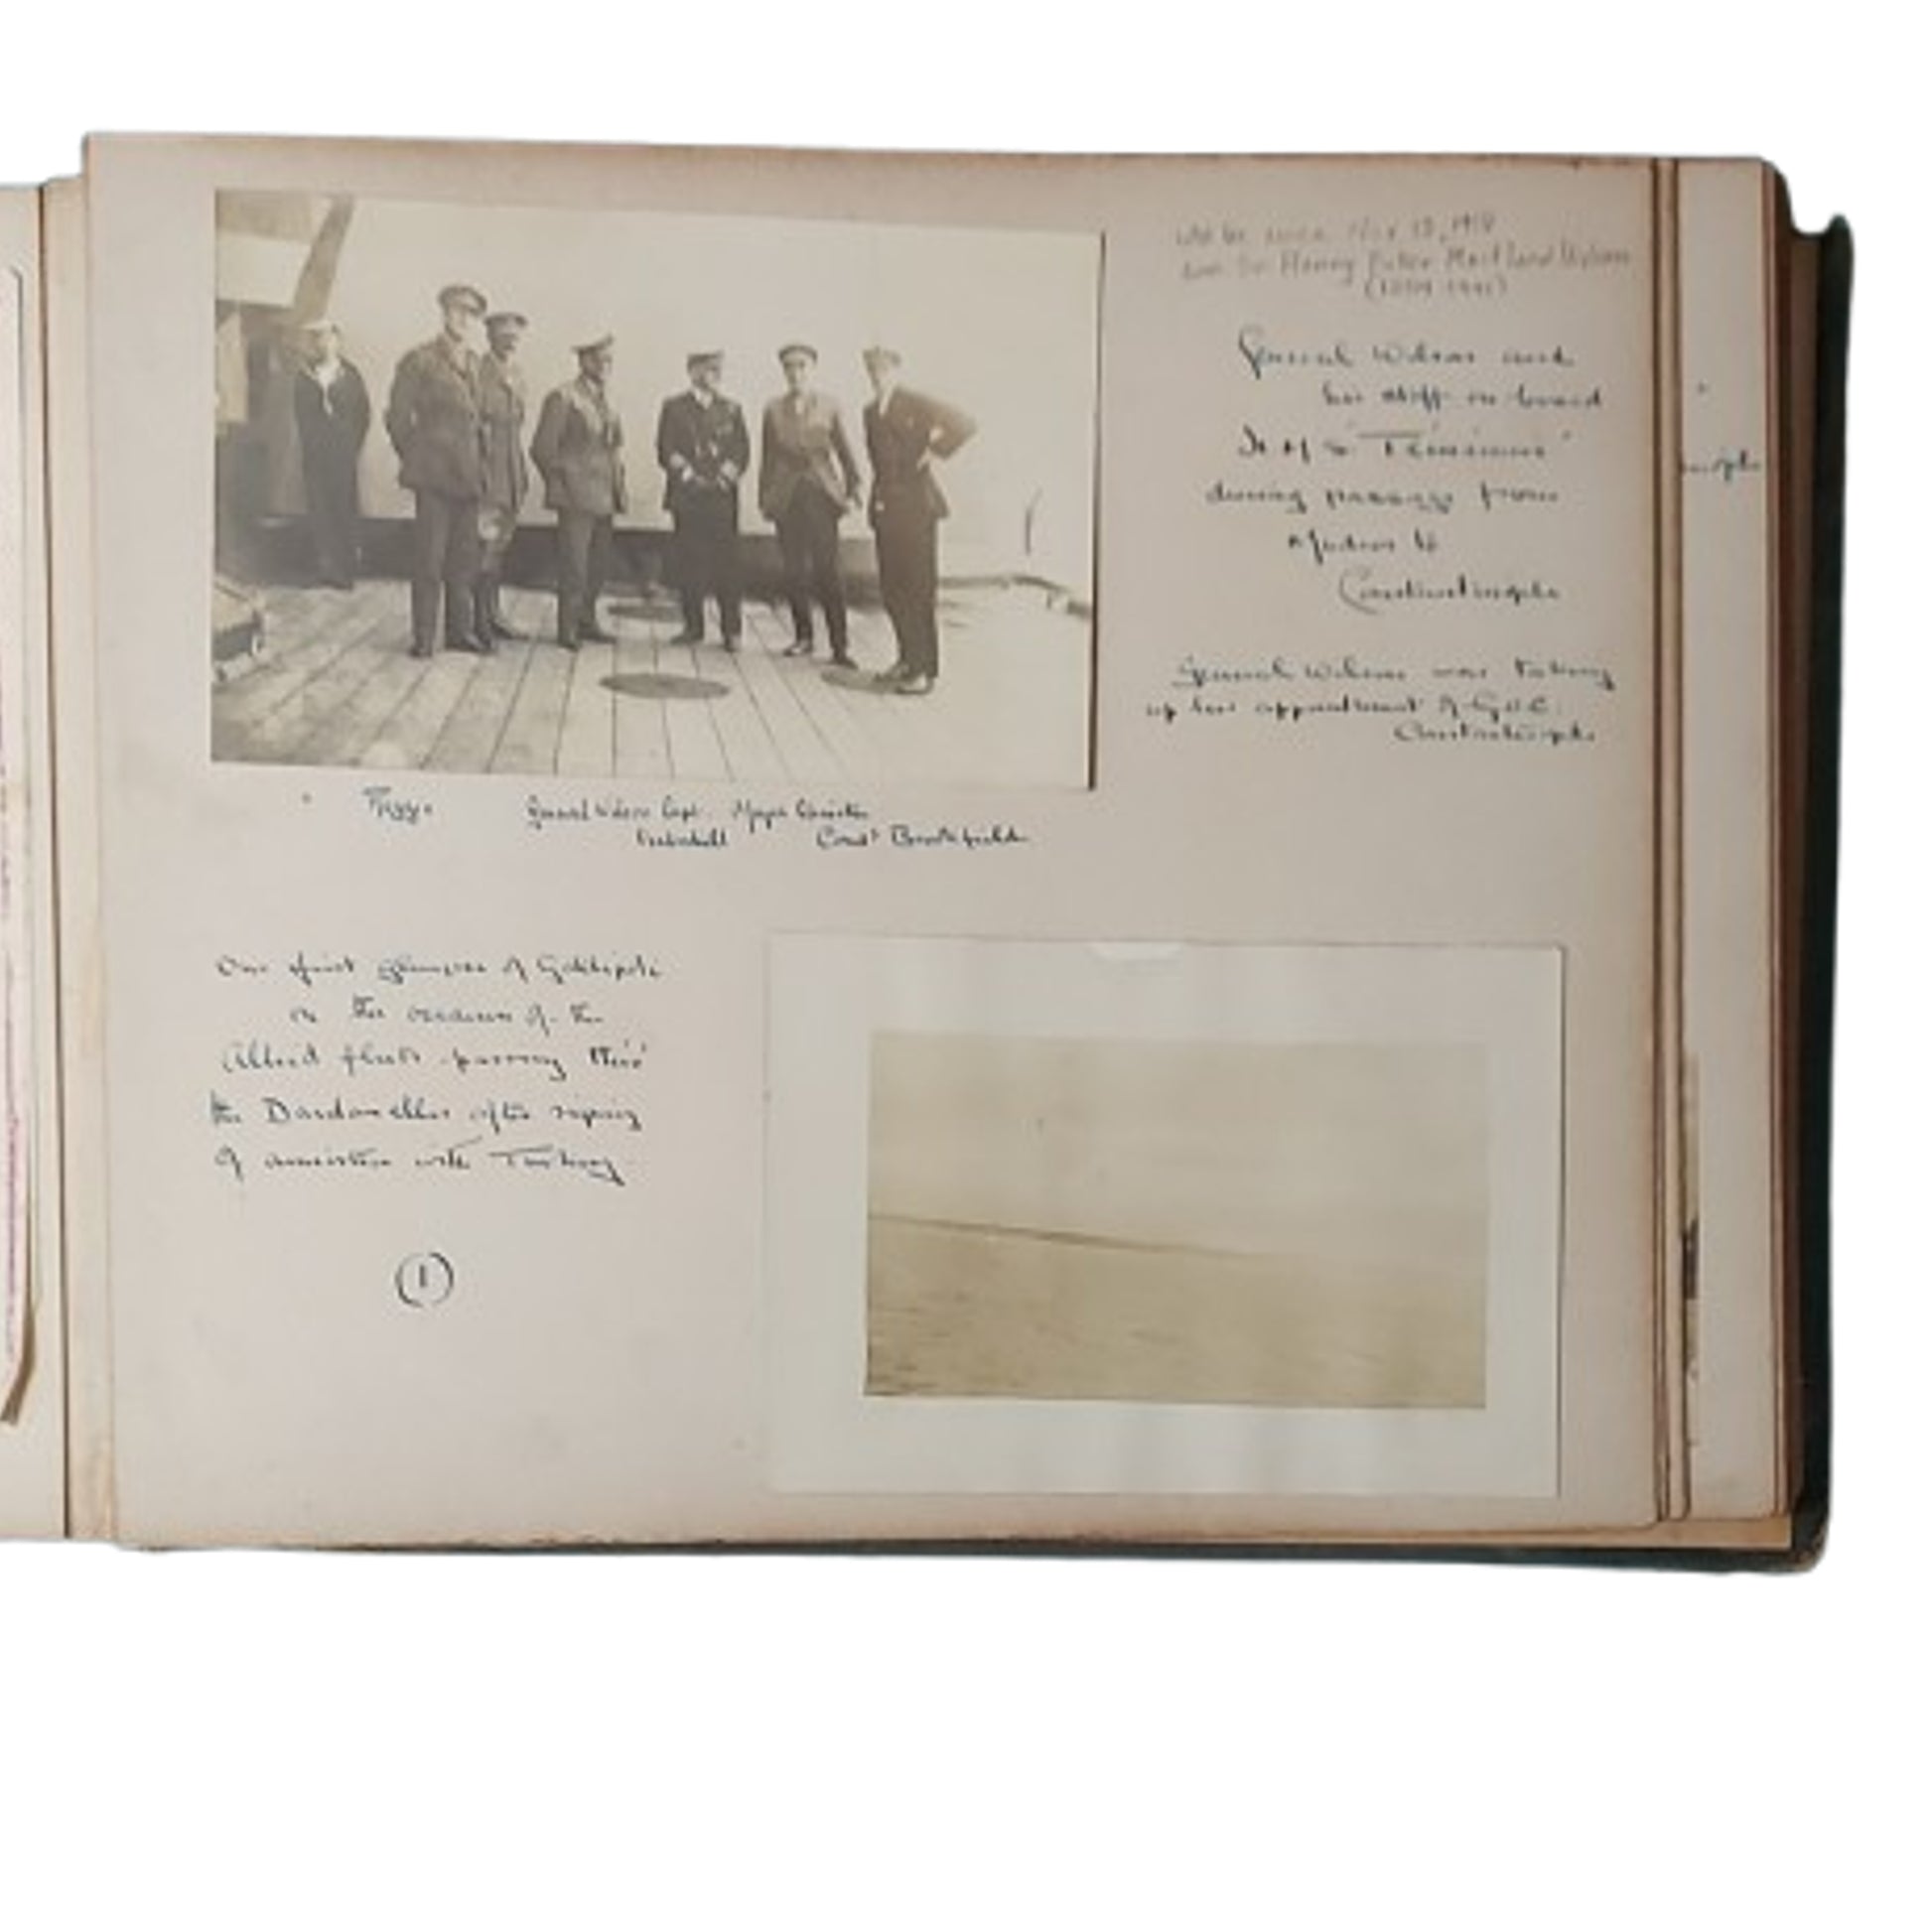 Nov 13, 1918
Sir Henry Fuller Maitland Wilson
General Wilson and
his staff on board
H M S 'Temeraire'
during passage from
Mudros to
Constantinople
General Wilson was taking
up his appointment of G.O.C.
Constantinople
General Wilson Capt. Major
Brookfield
Our first glimpse of Gallipoli
on the occasion of the
Allied fleets passing thro'
the Dardanelles after signing
of armistice with Turkey
(1)